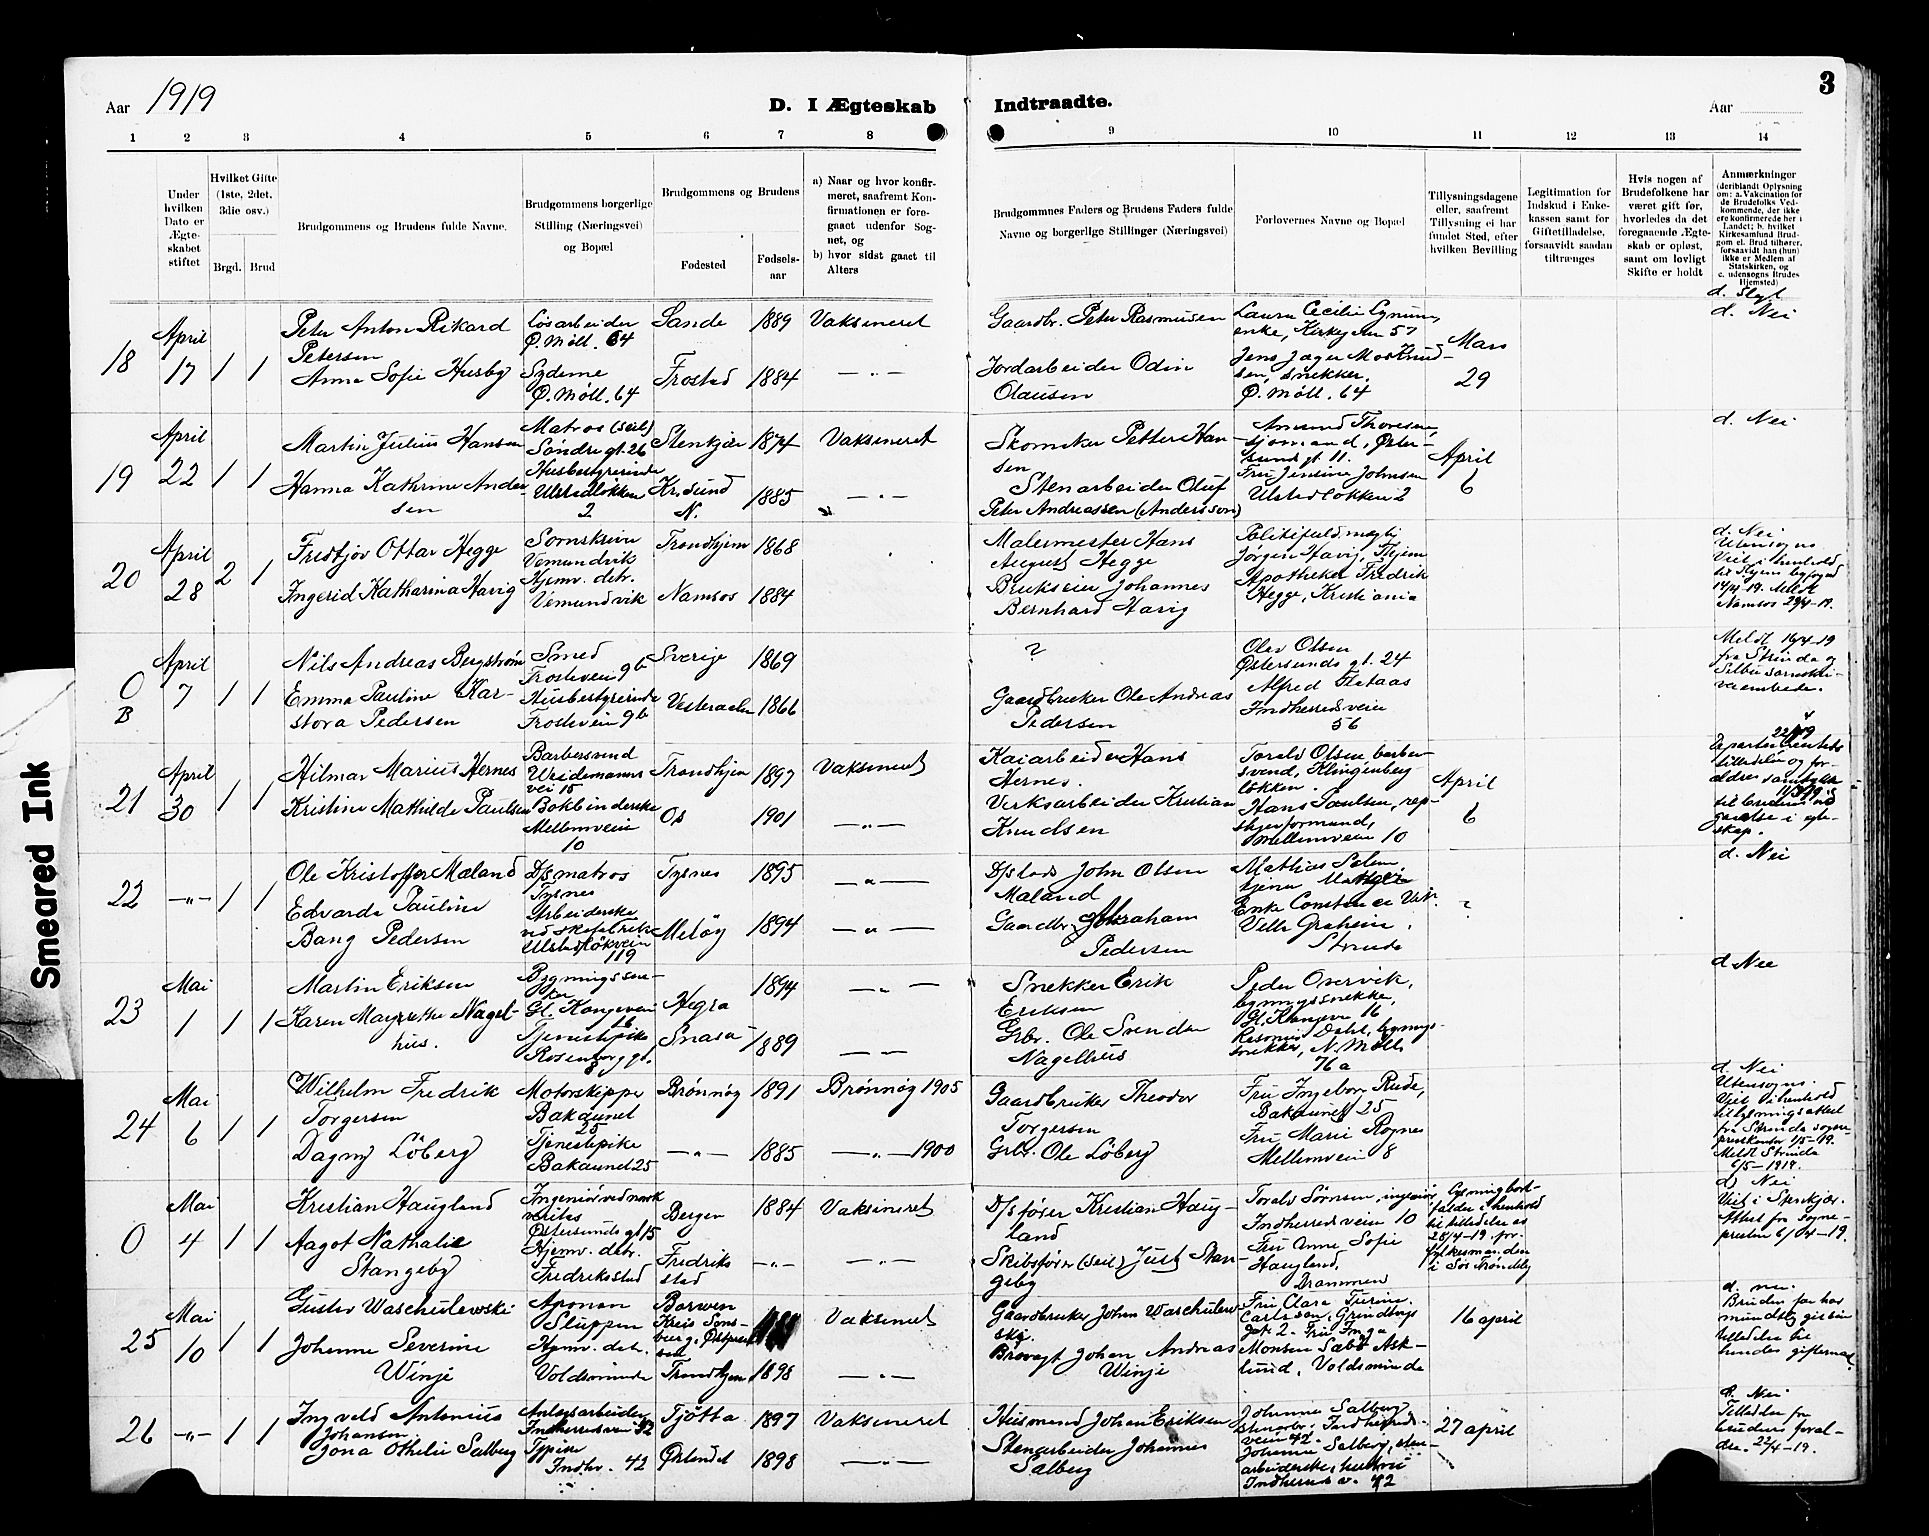 3
Aar 1919
D. I Ægteskab Indtraadte.
Aar
1 2 3 4 5 6 7 8 9 10 11 12 13 14
Under hvilken Dato er Ægteskabet stiftet
Hvilket Gifte (1ste, 2det, 3die osv.)
Brgd. Brud
Brudgommens og Brudens fulde Navne.
Brudgommens borgerlige Stilling (Næringsvei) og Bopæl
Brudgommens og Brudens
Fødested
Fødselsaar
a) Naar og hvor konfirmeret, saafremt Konfirmationen er foregaaet udenfor Sognet, og
b) hvor sidst gaaet til Alters
Brudgommnes Faders og Brudens Faders fulde Navne og borgerlige Stillinger (Næringsvei)
Forlovernes Navne og Bopæl
Tillysningsdagene eller, saafremt Tillysning ei har fundet Sted, efter hvilken Bevilling
Legitimation for Indskud i Enkekassen samt for Giftetilladelse, forsaavidt saadan tiltrænges
Hvis nogen af Brudefolkene har været gift før, hvorledes da det foregaaende Ægteskab er opløst, samt om lovligt Skifte er holdt
Anmærkninger (deriblandt Oplysning om: a. Vakcination for de Brudefolks Vedkommende, der ikke ere konfirmerede her i Landet; b. hvilket Kirkesamfund Brudgom el. Brud tilhører, forsaavidt han (hun) ikke er Medlem af Statskirken, og c. udensogns Brudes Hjemsted)
18
April
17
1 1
Peter Anton Rikard
Petersen
Anna Sofie Husby
Løsarbeider
Ø. Møll. 64
Syderne
Ø. Møll. 64
Sande
Frosted
1889
1884
Vaksineret
— „ —
Gaardbr. Peter Rasmusen
Jordarbeider Odin
Olausen
Laura Cecilie
enke, Kirkegaten 57
Jens Jæger Mo Knud-
sen, snekker.
Ø. Møll. 64
Mars
29
d. Nei
19
April
22
1 1
Martin Julius Hansen
Hanna Kathrine Ander-
sen
Matros (seil)
Søndre gt. 26
Husbestyrerinde
Ulstadløkken
2
Stenkjær
Kr.sund
N.
1874
1885
Vaksineret
— „ —
Skomaker Petter Han-
sen
Stenarbeider Oluf
Peter Andreassen (Andersson)
Amund Thoresen,
sjømand, Øster-
sunds gt. 11.
Fru Jensine Johnsen
Ulstadløkken 2
April
6
d. Nei
20
April
28
2 1
Fridtjov Ottar Hegge
Ingerid Katharina Havig
Sorenskriver
Vemundvik
Hjemv. detr.
Vemundvik
Trondhjem
Namsos
1868
1884
Malermester Hans
August Hegge
Brukseier Johannes
Bernhard Havig
Politifuldmægtig
Jørgen Havig, Thjem
Apotheker Fredrik
Hegge, Kristiania
d. Nei
Utensogns
Viet i henhold
Meldt
Namsos 29/4-19.
0
B
April
7
1 1
Nils Andreas Bergstrøm
Emma Pauline Kar-
stora Pedersen
Smed
Frostaveien 9b
Husbestyrerinde
Frostaveien 9b
Sverige
Vesteraalen
1869
1866
?
Gaardbruker Ole Andreas
Pedersen
Olav Olsen
Østersunds gt. 24
Alfred Flataas
Indherredsveien
56
Meldt 16/4-19
fra Strinda og
Selbu sorenskri-
verembede.
21
April
30
1 1
Hilmar Marius Hernes
Kristine Mathilde Paulsen
Barbersvend
Weidemanns
vei 15
Bokbinderske
Mellemveien
10
Trondhjem
Os
1897
1901
Vaksineret
— „ —
Kaiarbeider Hans
Hernes.
Verksarbeider Kristian
Knudsen
Torald Olsen, barber-
svend, Klingenberg
løkken.
Hans Paulsen, rep-
slagerformand,
Mellemveien 10
April
6
22/4 19
Departementets
tilladelse og for-
ældres samtykke
til bruden ved
gaaelse i egte-
skap.
22
— „ —
1 1
Ole Kristoffer Mæland
Edvarda Pauline
Bang Pedersen
D/s matros
Tysnes
Arbeiderske
ved skofabrik
119
Tysnes
Meløy
1895
1894
— „ —
— „ —
D/s lods John Olsen
Mæland
Gaardbr. Abraham
Pedersen
Mathias
Enke Constance
Villa Graheim.
Strinda
?
d. Nei
23
Mai
1
1 1
Martin Eriksen
Karen Margrethe Nagel-
hus.
Bygningssne-
ker
Gl. Kongevei
16
Tjenestepike
Rosenborg gt.
Hegra
Snasa
1894
1889
— „ —
— —
Snekker Erik
Eriksen
Grbr. Ole Svendsen
Nagelhus
Peder Overvik,
bygningssnekke,
Gl. Kongevei 16
Dahl, bygnings-
snekker, N. Møll.
76 a
d. Nei
24
Mai
6
1 1
Wilhelm Fredrik
Torgersen
Dagny Løberg
Motorskipper
Bakaunet
25
Tjenestepike
Bakaunet 25
Brønnøy
— „ —
1891
1885
Brønnøy 1905
— „ — 1900
Gaardbruker Theodor
Torgersen
Grbr. Ole Løberg
Fru Ingeborg Rude,
Bakaunet 25
Fru Marie Rognes
Mellemveien 8
d. Nei
Utensogns.
Viet i henhold
til lysningsattest
fra Strinda sogne-
prestkontor 1/5-19.
Meldt Strinda
6/5-1919.
0
Mai
4
1 1
Kristian Haugland
Aagot Nathalie
Stangeby
Ingeniør ved norsk
veritas
Østersunds gt 15
Hjemv. detr.
Fredriksstad
Bergen
Fredriks
stad
1884
— „ —
Vaksineret
— „ —
D/s fører Kristian Haug-
land
Skibsfører (seil) Just Stan-
geby
Torald Sørnsen, ingeniør
Indherredsveien 10
Fru Anna Sofie
Haugland,
Drammen
Lysning bort-
falder i henhold
til tilladelse av
28/4-19. fra
fylkesmanden
i Sør Trøndelag
d) Nei
Viet i Stenkjær.
Attest fra sogne-
presten 6/04-19.
25
Mai
10
1 1
Gustav Waschulewski
Johanne Severine
Winje
Sluppen
Hjemv. detr.
Voldsminde
Kreis Sens-
berg, Østpreus-
sen
Trondhjem
1898
Vaksineret
— „ —
Gaardbruker John Waschulew-
ski.
Brøvagt Johan Andreas
Winje
Fru Clara Turine
Carlsson, Grindbergs
gate 2. Fru Inga
Monsen Sæbø Ask-
lund, Voldsminde
16 april
d. nei.
Bruden far har
mundtlig git sin
tilladelse til
hendes giftermaal
26
— „ —
1 1
Ingvald Antonius
Johansen.
Jona Othelie Salberg
Anlægsarbeider
Indherredsveien 42
Typise
Indhv. 42
Tjøtta
Ørlandet
1897
1898
Vaksineret
— „ —
Husmand Johan Eriksen
Stenarbeider Johannes
Salberg
Johanne Salberg
Indherreds-
veien 42.
Johannes Salberg, sten-
arbeider
Indherreds v. 42
27 april
d. Nei
Tilladelse fra
brudens foræl-
dre. 22/4-19.
Smeared Ink